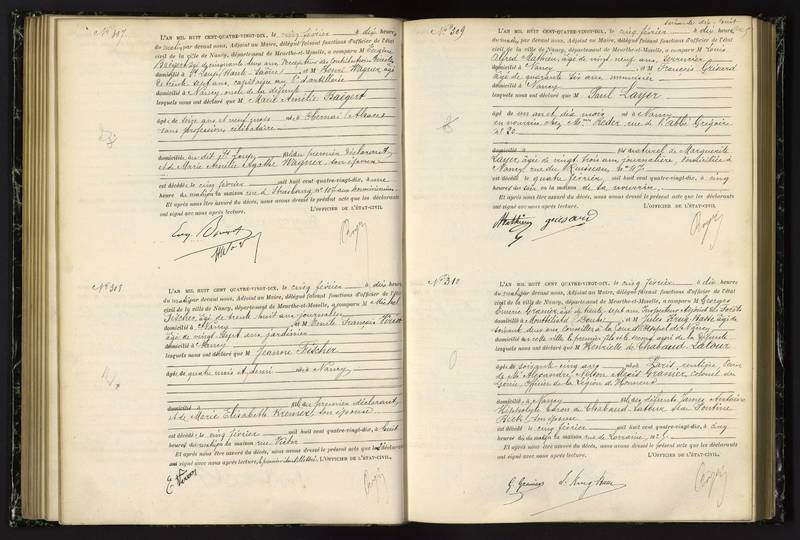 No 307
L'AN MIL HUIT CENT-QUATRE-VINGT-DIX, le cinq février à dix heures
du matin par devant nous, Adjoint au Maire, délégué faisant fonctions d'officier de l'état
civil de la ville de Nancy, département de Meurthe-et-Moselle, a comparu M Eugène
Baegert âgé de cinquante deux ans
domicilié à St Loup (Haute-Saône) et M Henri Wagner, âgé
de trente sept ans, capitaine
domicilié à Nancy, oncle de la défunte
lesquels nous ont déclaré que M Marie Amélie Baegert
âgée de seize ans et neuf mois née à Obernai (Alsace)
sans profession célibataire
domiciliée au dit St Loup, fille du premier déclarant
et de Marie Amélie Agathe Wagner, son épouse
est décédée le cinq février mil huit cent quatre-vingt-dix, à une
heure du matin en la maison rue de Strasbourg No 107
Et après nous être assuré du décès, nous avons dressé le présent acte que les déclarants
ont signé avec nous après lecture. L'OFFICIER DE L'ÉTAT-CIVIL
No 308
L'AN MIL HUIT CENT QUATRE-VINGT-DIX, le cinq février à dix heures
du matin par devant nous, Adjoint au Maire, délégué faisant fonctions d'officier de l'état
civil de la ville de Nancy, département de Meurthe-et-Moselle, a comparu M Michel
Fischer, âgé de trente huit ans journalier
domicilié à Nancy et M Emile François
âgé de vingt sept ans jardinier
domicilié à Nancy
lesquels nous ont déclaré que M Jeanne Fischer
âgée de quatre mois et demi née à Nancy
domiciliée à fille du premier déclarant,
et de Marie Elisabeth son épouse
est décédée le cinq février mil huit cent quatre-vingt-dix, à huit
heures du matin en la maison rue
Et après nous être assuré du décès, nous avons dressé le présent acte que le déclarant
ont signé avec nous après lecture, L'OFFICIER DE L'ÉTAT-CIVIL,
No 309
L'AN MIL HUIT CENT-QUATRE-VINGT-DIX, le cinq février à dix heures
du matin par devant nous, Adjoint au Maire, délégué faisant fonctions d'officier de l'état
civil de la ville de Nancy, département de Meurthe-et-Moselle, a comparu M Louis
Alfred Mathieu, âgé de vingt neuf ans, serrurier
domicilié à Nancy et M François Grisard
âgé de quarante six ans menuisier
domicilié à Nancy
lesquels nous ont déclaré que M Paul Layer
âgé de un an et dix mois né à Nancy
en nourrice chez Mme Reder, rue de l'abbé Grégoire
No 20
fils naturel de Marguerite
Layer, âgée de vingt trois ans journalière, domiciliée à
Nancy rue du Ruisseau No 47
est décédé le quatre février mil huit cent quatre-vingt-dix, à cinq
heures du soir en la maison de sa nourrice.
Et après nous être assuré du décès, nous avons dressé le présent acte que les déclarants
ont signé avec nous après lecture. L'OFFICIER DE L'ÉTAT-CIVIL
Mathieu grisard
No 310
L'AN MIL HUIT CENT QUATRE-VINGT-DIX, le cinq février à dix heures
du matin par devant nous, Adjoint au Maire, délégué faisant fonctions d'officier de l'état
civil de la ville de Nancy, département de Meurthe-et-Moselle, a comparu M Georges
Granier âgé de trente sept ans Inspecteur
domicilié à et M Jules âgé de
soixante deux ans, Conseiller à la Cour d'Appel de Nancy
domicilié en cette ville le premier fils et le second ami de la défunte
lesquels nous ont déclaré que M Henriette de Chabaud-Latour
âgée de soixante cinq ans née à Paris, rentière, Veuve
de Mr Alexandre Nelson Granier colonel du
Génie, Officier de la Légion d'Honneur
domiciliée à Nancy fille des défunts James Antoine
Hippolyte Baron de Chabaud-Latour et de
son épouse
est décédée le cinq février mil huit cent quatre-vingt-dix, à cinq
heures du matin en la maison rue de Lorraine, No 5
Et après nous être assuré du décès, nous avons dressé le présent acte que les déclarants
ont signé avec nous après lecture. L'OFFICIER DE L'ÉTAT-CIVIL.
G. Granier